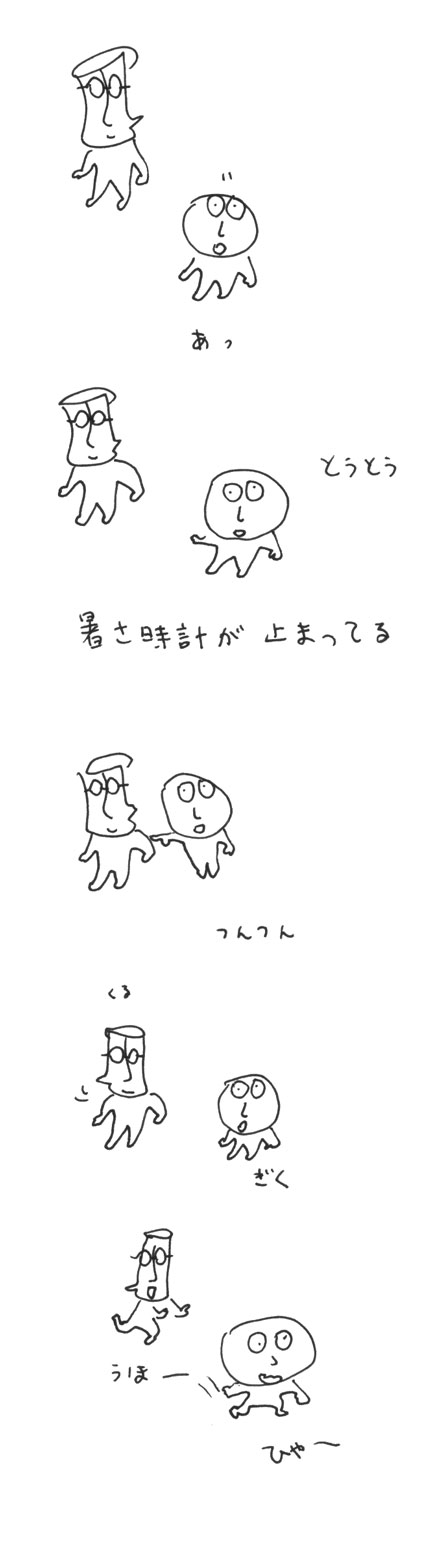 あっ
とうとう
暑さ時計が 止まってる
つんつん
くる
ぎく
うほー
ひゃ〜